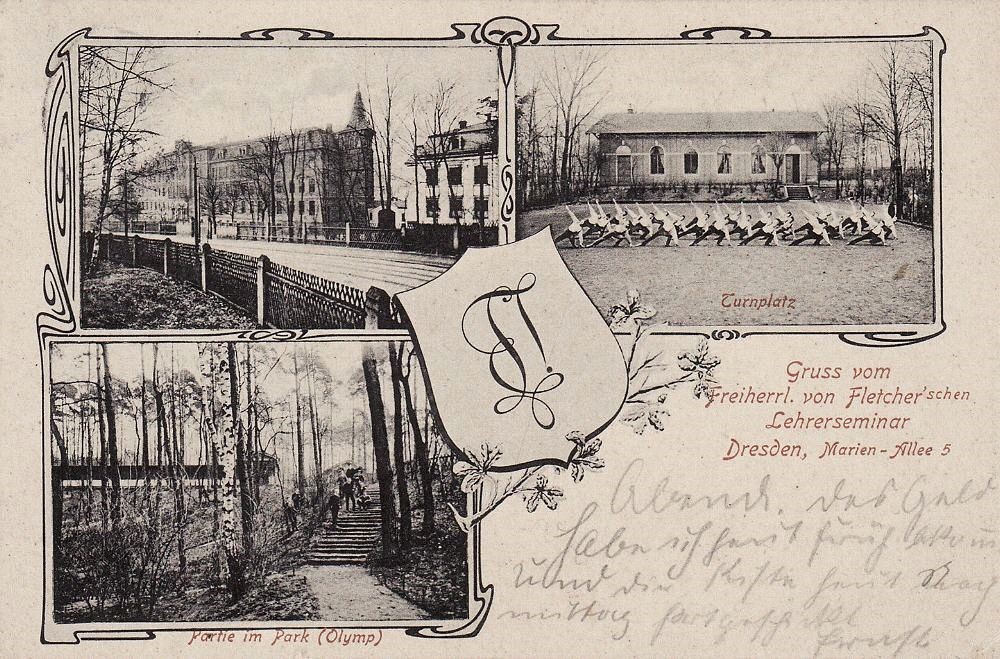 Turnplatz
Gruss vom
Freiherrl. von Fletcher'schen
Lehrerseminar
Dresden, Marien-Allee 5
Abend. Das Geld
habe ich heut früh
und die Kiste heut Nach
mittag fortgeschickt
Ernst
Partie im Park (Olymp)